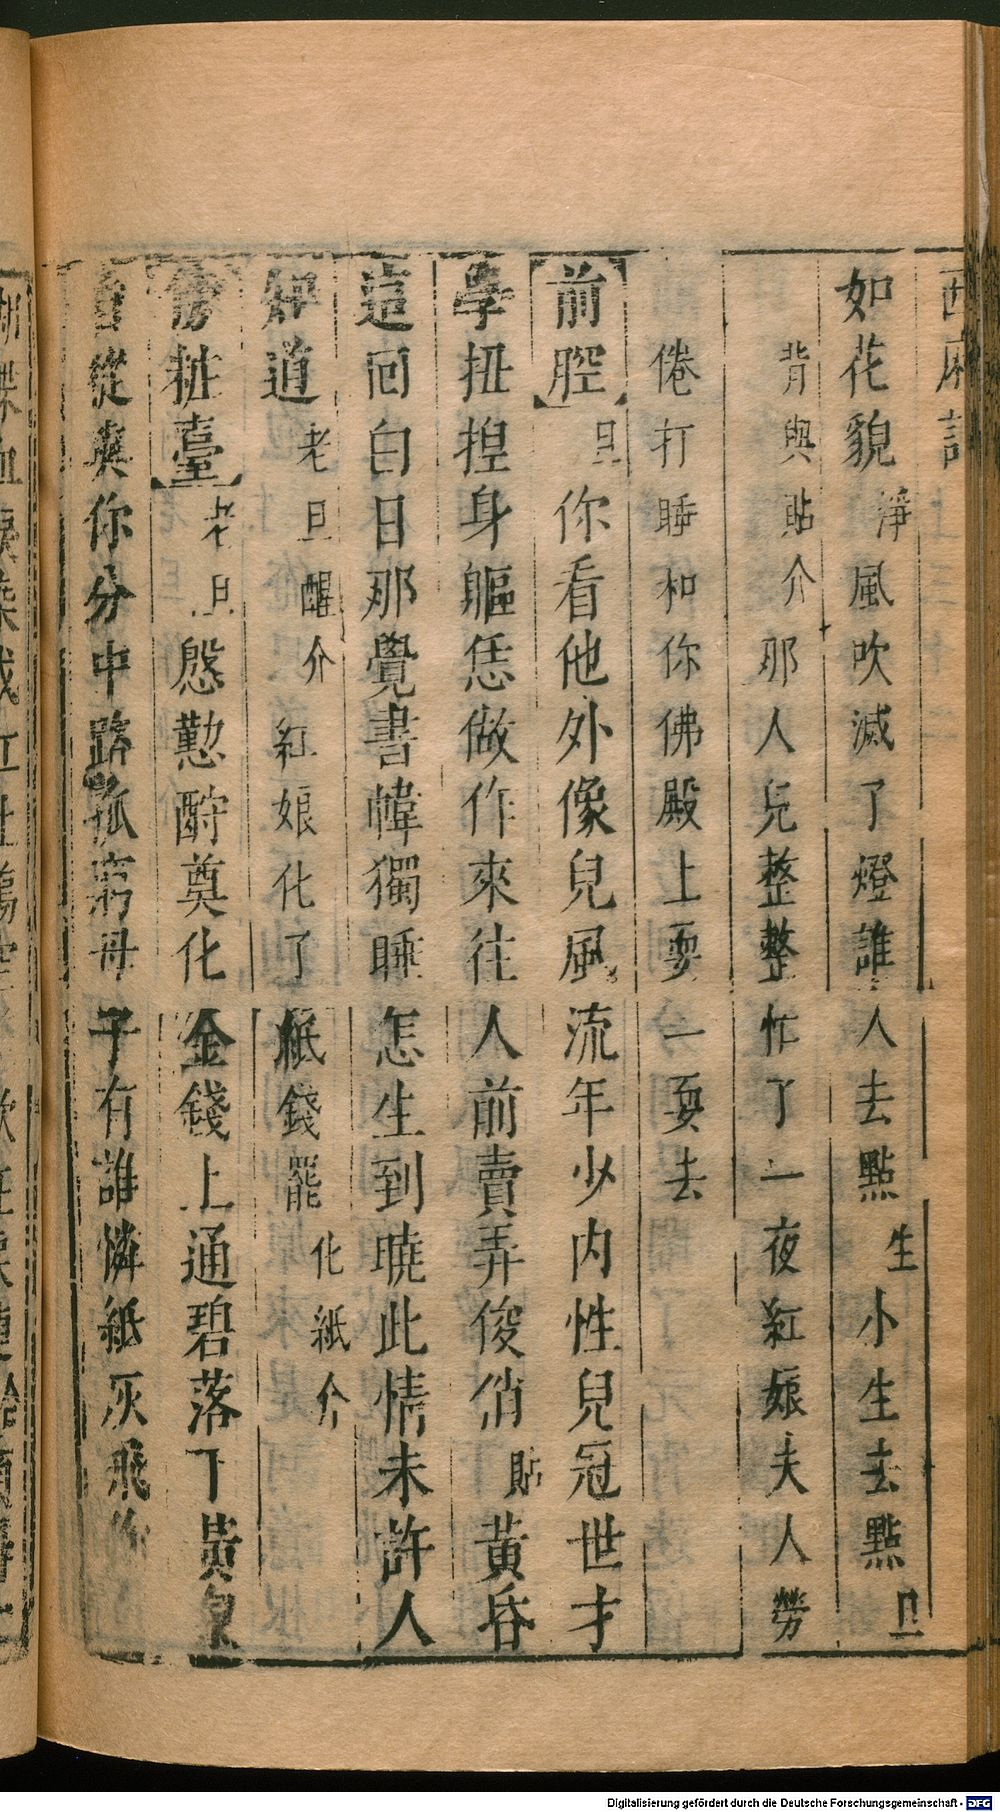 西廂記
如花貌 淨 風吹滅了燈誰人去點 生 小生去點 旦
背與貼介 那人兒整整忙了一夜紅娘夫人勞
倦打睡和你佛殿上耍一耍去
前腔 旦 你看他外像兒風流年少內性兒冠世才
學扭捏身軀恁做作來往人前賣弄俊俏 貼 黃昏
這回白日那覺書幃獨睡怎生到曉此情未許人
知道 老旦醒介 紅娘化了紙錢罷 化紙介
傍粧臺 老旦 慇懃酹奠化金錢上通碧落下黃泉
從與你分中路孤窮母子有誰憐紙灰飛
Digitalisierung gefördert durch die Deutsche Forschungsgemeinschaft - DFG